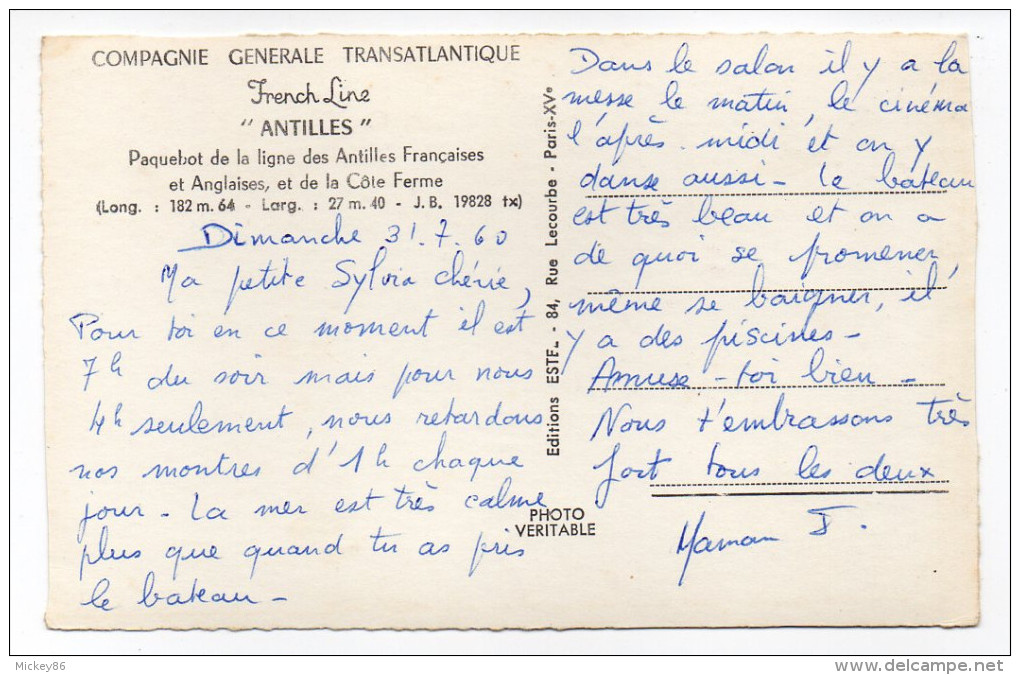 COMPAGNIE GENERALE TRANSATLANTIQUE
French Line
"ANTILLES"
Paquebot de la ligne des Antilles Françaises
et Anglaises, et de la Côte Ferme
(Long. : 182 m. 64 - Larg. : 27 m. 40 - J. B. 19828 tx)
Dimanche 31.7.60
Ma petite Sylvia chérie,
Pour toi en ce moment il est
7h du soir mais pour nous
4h seulement, nous retardons
nos montres d'1h chaque
jour - La mer est très calme
plus que quand tu as pris
le bateau -
Editions ESTEL - 84, Rue Lecourbe - Paris-XVe
PHOTO
VERITABLE
Dans le salon il y a la
messe le matin, le cinéma
l'après-midi et on y
danse aussi - Le bateau
est très beau et on a
de quoi se promener,
même se baigner, il
y a des piscines -
Amuse-toi bien -
Nous t'embrassons très
fort tous les deux
Maman
Mickey86
www.delcampe.net